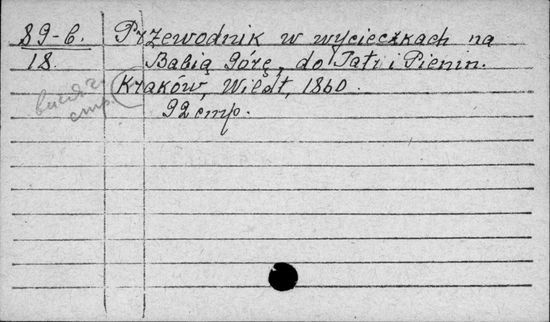 89-б. Przewodnik w wycieczkach na
18. Babią Górę, do Tatr i Pienin.
Kraków, Wiedt, 1860.
92 cmp.